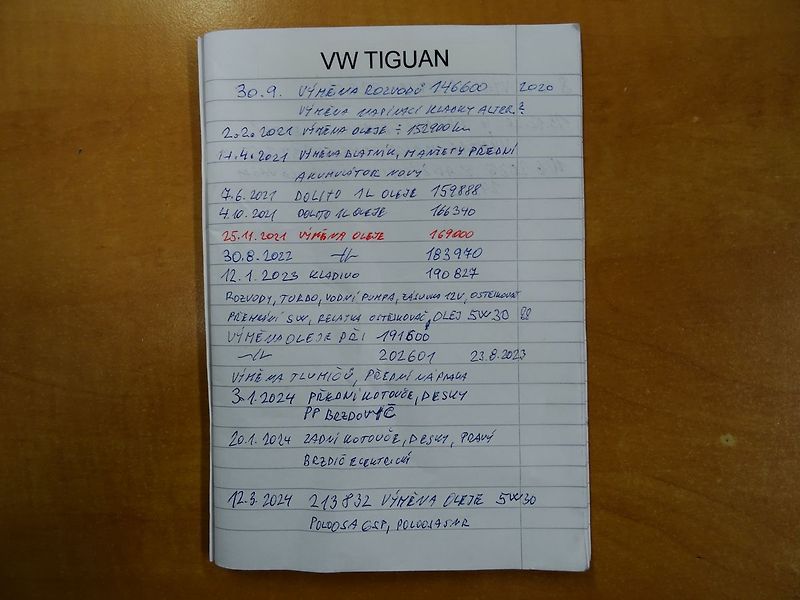 VW TIGUAN
30.9. VÝMĚNA ROZVODŮ 146600 2020
VÝMĚNA NAPÍNACÍ KLADKY ALTER.
2.2.2021 VÝMĚNA OLEJE ÷ 152900 km
4.2021 VÝMĚNA BLATNÍK, MANŽETY PŘEDNÍ
AKUMULÁTOR NOVÝ
7.6.2021 DOLITO 1L OLEJE 159888
4.10.2021 DOLITO 1L OLEJE 166340
25.11.2021 VÝMĚNA OLEJE 169000
30.8.2022 -//- 183970
12.1.2023 KLADIVO 190827
ROZVODY, TURBO, VODNÍ PUMPA, ZÁSUVKA 12V, OSTŘIKOVAČ
SW, RELÁTKA OSTŘIKOVAČ, OLEJ 5W30
VÝMĚNA OLEJE PŘI 191600
-//- 202601 23.8.2023
VÝMĚNA TLUMIČŮ, PŘEDNÍ NÁPRAVA
3.1.2024 PŘEDNÍ KOTOUČE, DESKY
PP BRZDOVIČ
20.1.2024 ZADNÍ KOTOUČE, DESKY, PRAVÝ
BRZDIČ ELEKTRICKÝ
12.3.2024 213832 VÝMĚNA OLEJE 5W30
POLOOSA